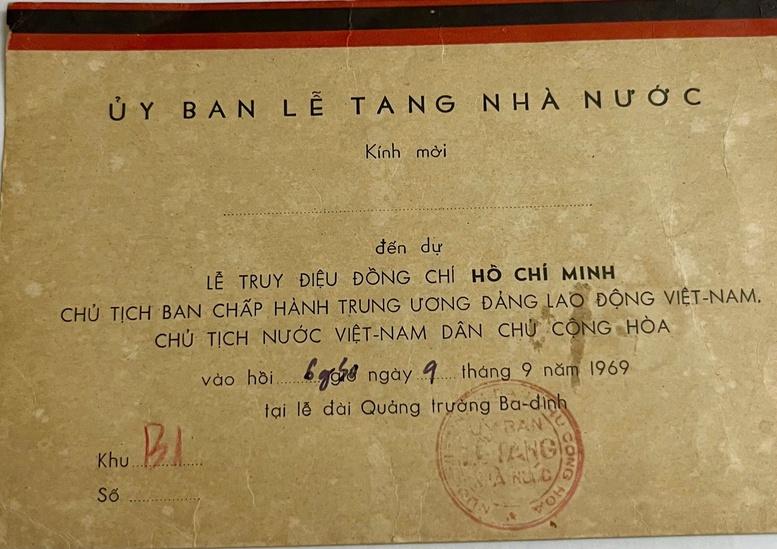 ỦY BAN LỄ TANG NHÀ NƯỚC
Kính mời
đến dự
LỄ TRUY ĐIỆU ĐỒNG CHÍ HỒ CHÍ MINH
CHỦ TỊCH BAN CHẤP HÀNH TRUNG ƯƠNG ĐẢNG LAO ĐỘNG VIỆT-NAM,
CHỦ TỊCH NƯỚC VIỆT-NAM DÂN CHỦ CỘNG HÒA
vào hồi 6 giờ ngày 9 tháng 9 năm 1969
tại lễ đài Quảng trường Ba-đình
Khu B1
Số
ỦY BAN
LỄ TANG
NHÀ NƯỚC
CỘNG HÒA